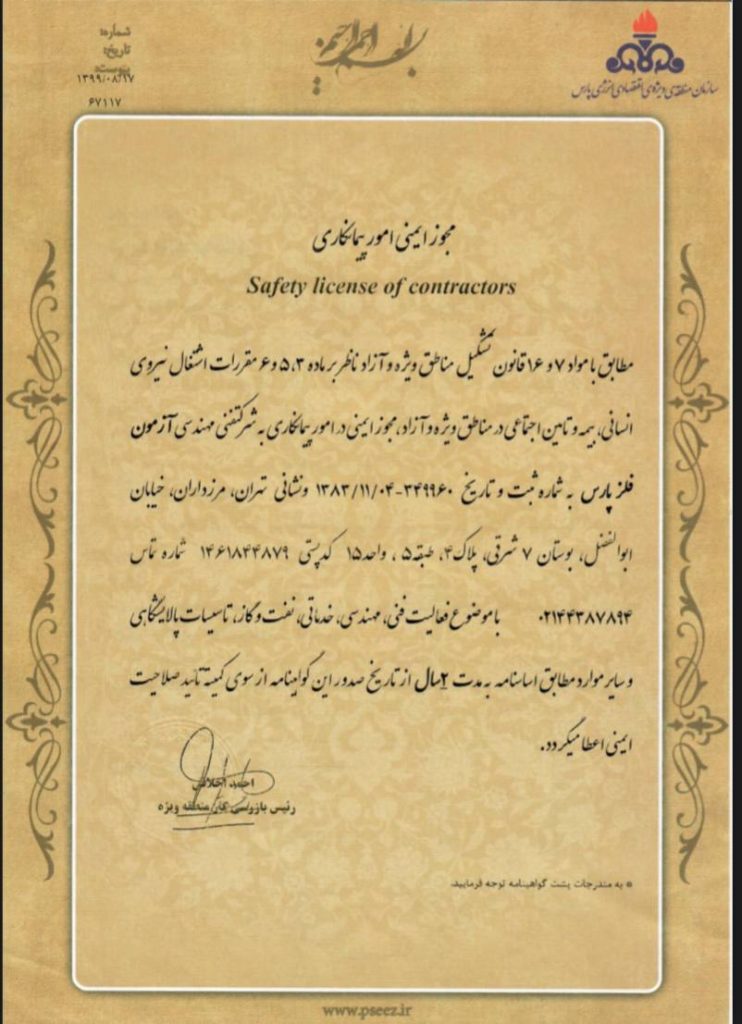 شماره:
تاریخ:
پیوست:
۱۳۹۹/۰۸/۱۷
۶۷۱۱۷
بسم الله الرحمن الرحیم
سازمان منطقه‌ی ویژه‌ی اقتصادی انرژی پارس
مجوز ایمنی امور پیمانکاری
Safety license of contractors
مطابق با مواد ۷ و ۱۶ قانون تشکیل مناطق ویژه و آزاد ناظر بر ماده ۳، ۵ و ۶ مقررات اشتغال نیروی
انسانی، بیمه و تامین اجتماعی در مناطق ویژه و آزاد، مجوز ایمنی در امور پیمانکاری به شرکت فنی مهندسی آزمون
فلز پارس به شماره ثبت و تاریخ ۳۴۹۹۶۰-۱۳۸۳/۱۱/۰۴ ونشانی تهران، مرزداران، خیابان
ابوالفضل، بوستان ۷ شرقی، پلاک ۴، طبقه ۵ ، واحد ۱۵ کدپستی ۱۴۶۱۸۴۴۸۷۹ شماره تماس
۰۲۱۴۴۳۸۷۸۹۴ با موضوع فعالیت فنی، مهندسی، خدماتی، نفت و گاز، تاسیسات پالایشگاهی
و سایر موارد مطابق اساسنامه به مدت ۲سال از تاریخ صدور این گواهینامه از سوی کمیته تائید صلاحیت
ایمنی اعطا میگردد.
احمد اخلاقی
رئیس بازرسی کار منطقه ویژه
* به مندرجات پشت گواهینامه توجه فرمایید.
www.pseez.ir